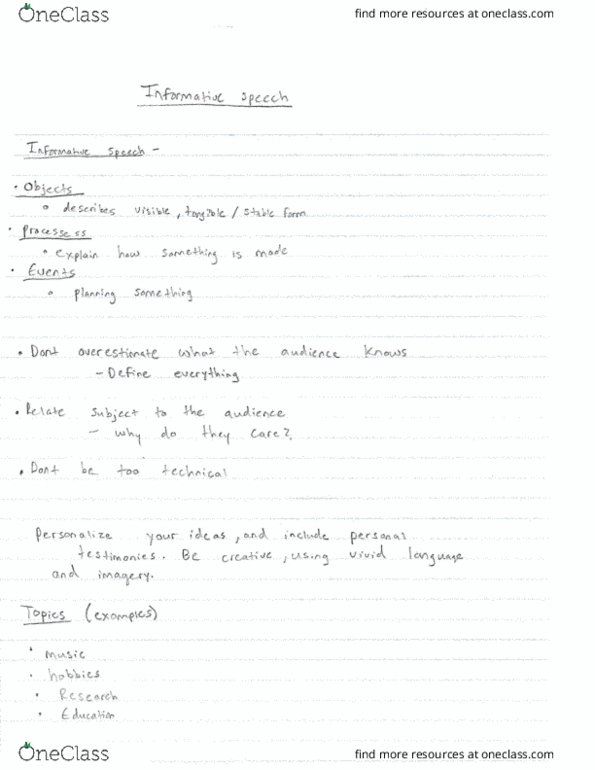 OneClass
find more resources at oneclass.com
Informative speech
Informative speech -
• Objects
• describes visible, tangible / stable form
• Processess
• explain how something is made
• Events
• planning something
• Dont overestimate what the audience knows
- Define everything
• Relate subject to the audience
- why do they care?
• Dont be too technical
Personalize your ideas, and include personal
testimonies. Be creative, using vivid language
and imagery.
Topics (examples)
• music
• hobbies
• Research
• Education
OneClass
find more resources at oneclass.com